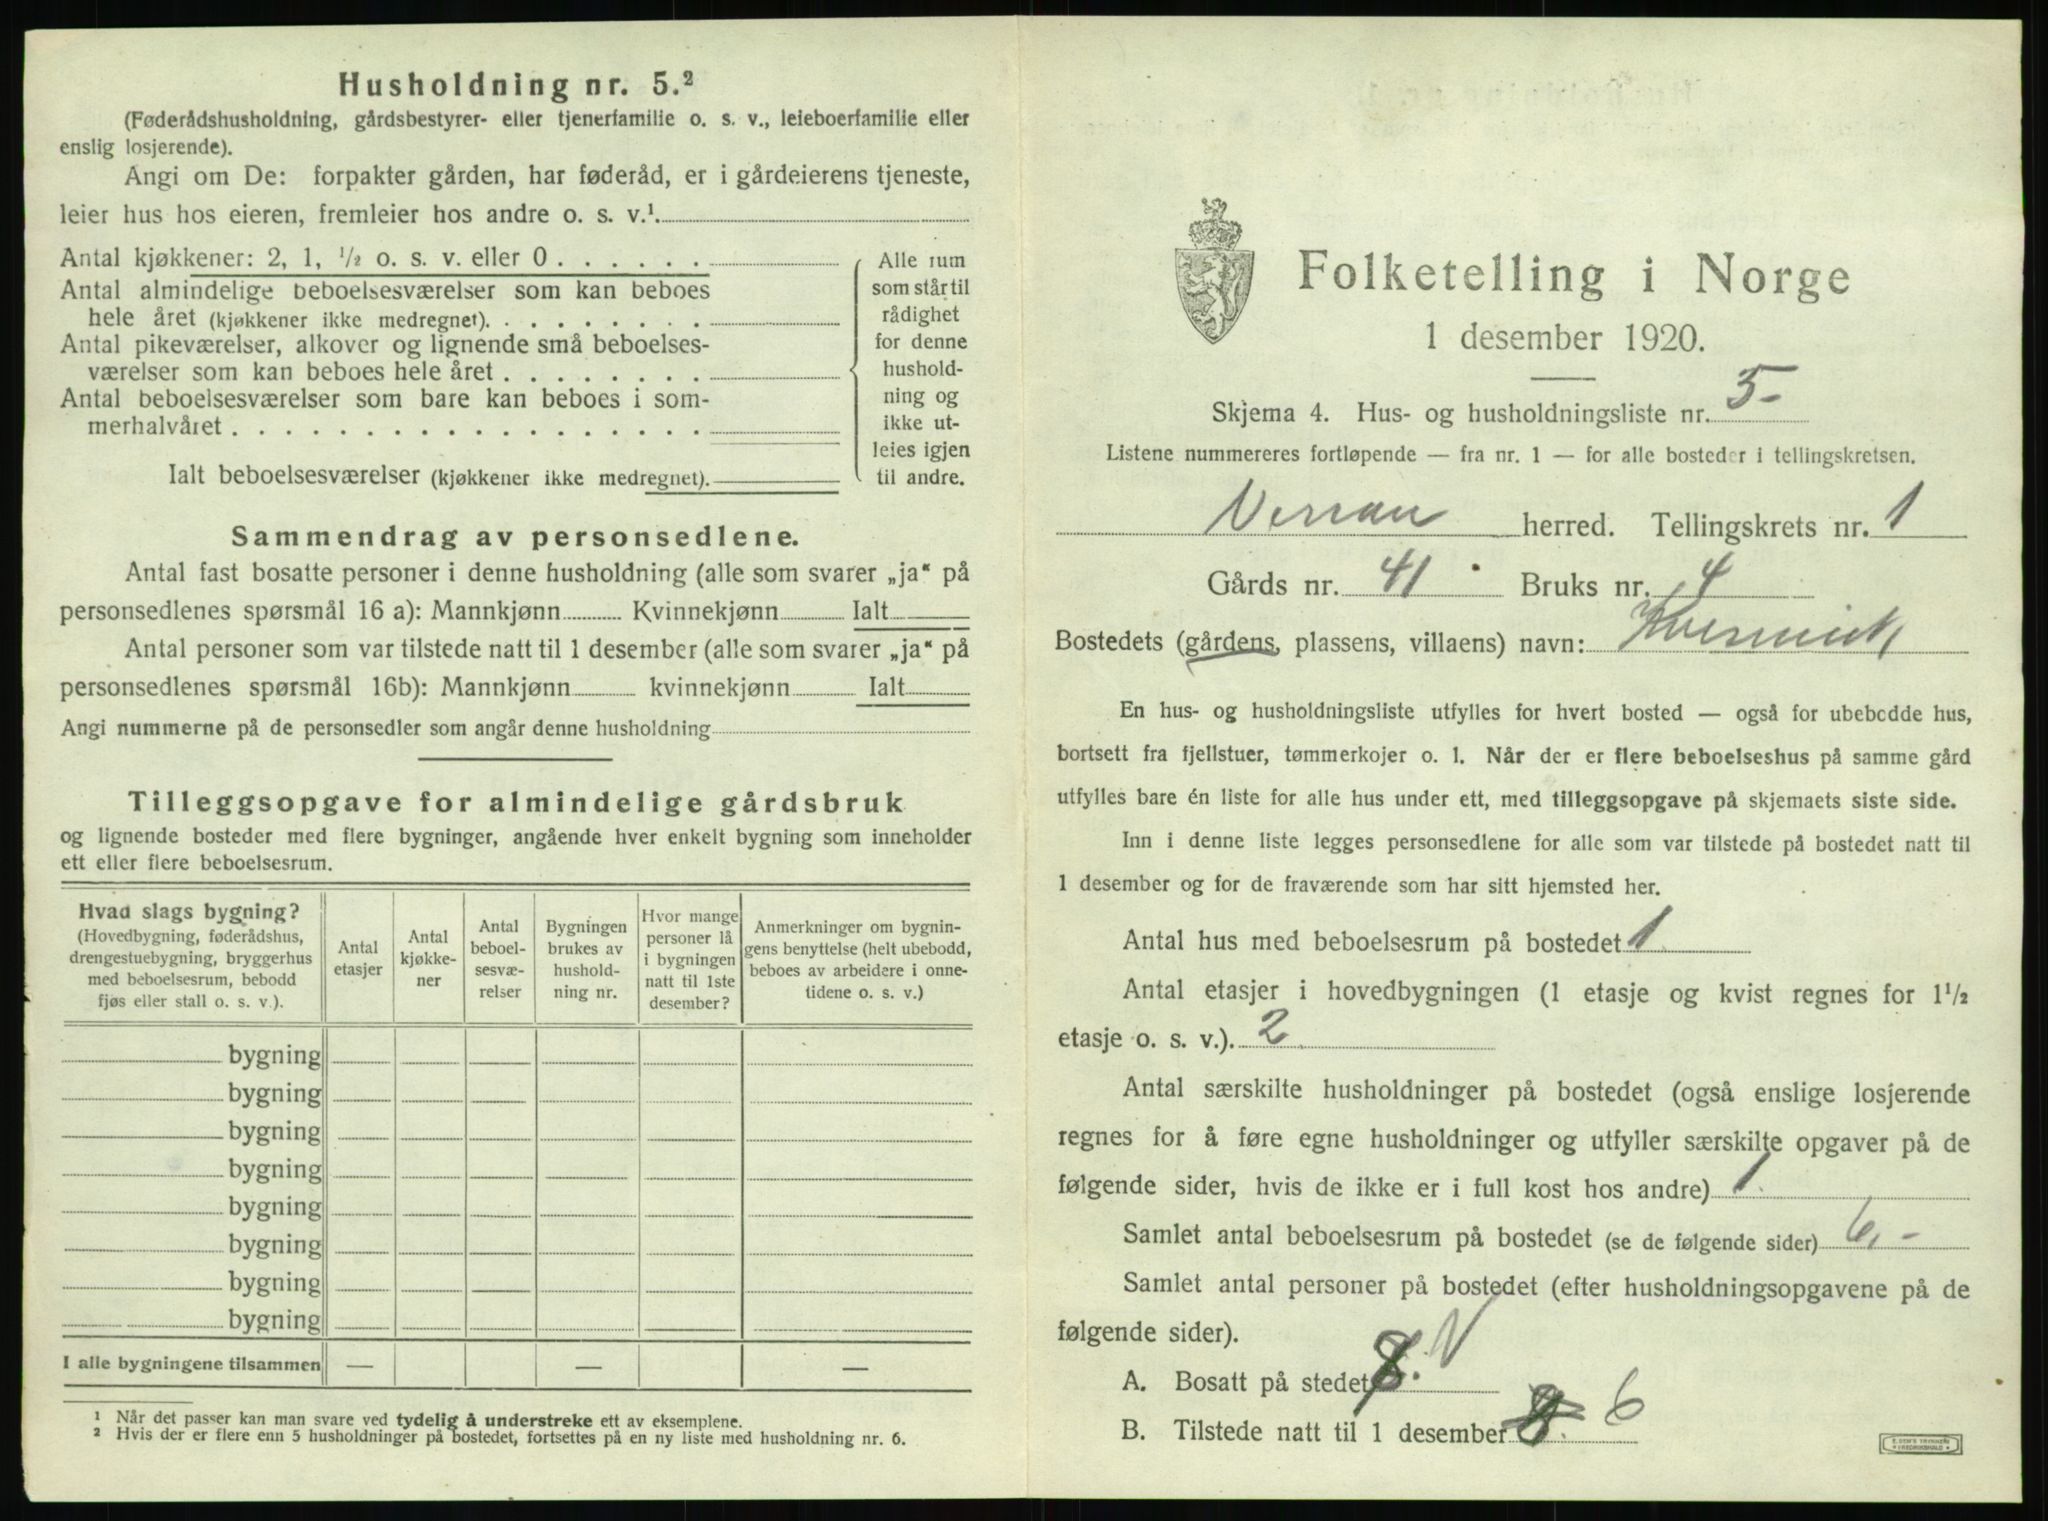 Husholdning nr. 5.²
(Føderådshusholdning, gårdsbestyrer- eller tjenerfamilie o. s. v., leieboerfamilie eller
enslig losjerende).
Angi om De: forpakter gården, har føderåd, er i gårdeierens tjeneste,
leier hus hos eieren, fremleier hos andre o. s. v.¹
Antal kjøkkener: 2, 1, ½ o. s. v. eller 0 . . . . . .
Antal almindelige beboelsesværelser som kan beboes
hele året (kjøkkener ikke medregnet). . . . . . . . .
Antal pikeværelser, alkover og lignende små beboelses-
værelser som kan beboes hele året . . . . . . . .
Antal beboelsesværelser som bare kan beboes i som-
merhalvåret . . . . . . . . . . . . . . . . . .
Ialt beboelsesværelser (kjøkkener ikke medregnet).
Alle rum
som står til
rådighet
for denne
hushold-
ning og
ikke ut-
leies igjen
til andre.
Sammendrag av personsedlene.
Antal fast bosatte personer i denne husholdning (alle som svarer „ja“ på
personsedlenes spørsmål 16 a): Mannkjønn Kvinnekjønn Ialt
Antal personer som var tilstede natt til 1 desember (alle som svarer „ja“ på
personsedlenes spørsmål 16b): Mannkjønn kvinnekjønn Ialt
Angi nummerne på de personsedler som angår denne husholdning
Tilleggsopgave for almindelige gårdsbruk
og lignende bosteder med flere bygninger, angående hver enkelt bygning som inneholder
ett eller flere beboelsesrum.
Hvad slags bygning?
(Hovedbygning, føderådshus,
drengestuebygning, bryggerhus
med beboelsesrum, bebodd
fjøs eller stall o. s. v.).
Antal
etasjer
Antal
kjøkke-
ner
Antal
beboel-
sesvæ-
relser
Bygningen
brukes av
hushold-
ning nr.
Hvor mange
personer lå
i bygningen
natt til 1ste
desember?
Anmerkninger om bygnin-
gens benyttelse (helt ubebodd,
beboes av arbeidere i onne-
tidene o. s. v.)
bygning
bygning
bygning
bygning
bygning
bygning
bygning
bygning
I alle bygningene tilsammen — — —
¹ Når det passer kan man svare ved tydelig å understreke ett av eksemplene.
² Hvis der er flere enn 5 husholdninger på bostedet, fortsettes på en ny liste med husholdning nr. 6.
Folketelling i Norge
1 desember 1920.
Skjema 4. Hus- og husholdningsliste nr. 5-
Listene nummereres fortløpende — fra nr. 1 — for alle bosteder i tellingskretsen.
Verran herred. Tellingskrets nr. 1
Gårds nr. 41 Bruks nr. 4
Bostedets (gårdens, plassens, villaens) navn:
En hus- og husholdningsliste utfylles for hvert bosted — også for ubebodde hus,
bortsett fra fjellstuer, tømmerkojer o. l. Når der er flere beboelseshus på samme gård
utfylles bare én liste for alle hus under ett, med tilleggsopgave på skjemaets siste side.
Inn i denne liste legges personsedlene for alle som var tilstede på bostedet natt til
1 desember og for de fraværende som har sitt hjemsted her.
Antal hus med beboelsesrum på bostedet 1
Antal etasjer i hovedbygningen (1 etasje og kvist regnes for 1½
etasje o. s. v.). 2
Antal særskilte husholdninger på bostedet (også enslige losjerende
regnes for å føre egne husholdninger og utfyller særskilte opgaver på de
følgende sider, hvis de ikke er i full kost hos andre) 1.
Samlet antal beboelsesrum på bostedet (se de følgende sider) 6,-
Samlet antal personer på bostedet (efter husholdningsopgavene på de
følgende sider).
A. Bosatt på stedet
B. Tilstede natt til 1 desember 6
E. SEM'S TRYKKERI
FREDRIKSHALD